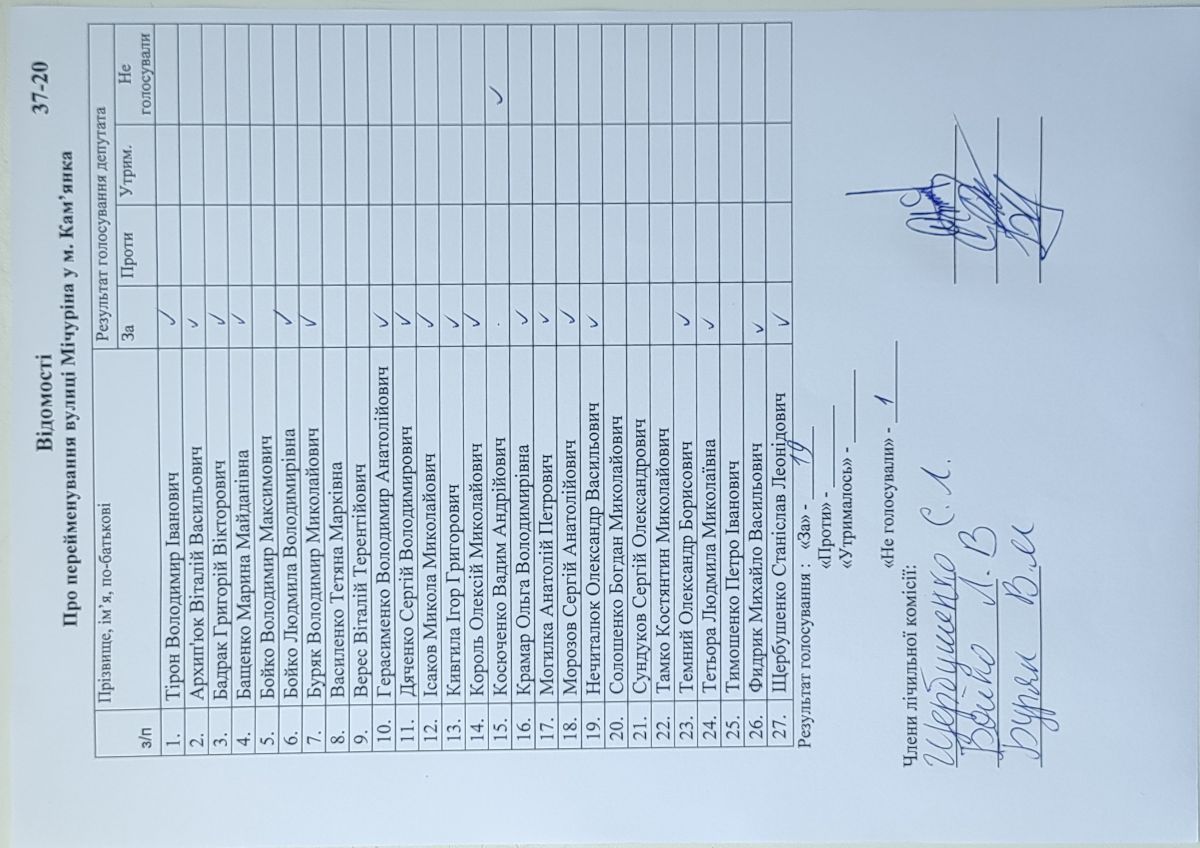 Відомості
Про перейменування вулиці Мічуріна у м. Кам’янка 37-20
з/п Прізвище, ім’я, по-батькові Результат голосування депутата
За Проти Утрим. Не голосували
1. Тірон Володимир Іванович ✓
2. Архип'юк Віталій Васильович ✓
3. Бадрак Григорій Вікторович ✓
4. Бащенко Марина Майданівна ✓
5. Бойко Володимир Максимович
6. Бойко Людмила Володимирівна ✓
7. Буряк Володимир Миколайович ✓
8. Василенко Тетяна Марківна
9. Верес Віталій Терентійович
10. Герасименко Володимир Анатолійович ✓
11. Дяченко Сергій Володимирович ✓
12. Ісаков Микола Миколайович ✓
13. Кивгила Ігор Григорович ✓
14. Король Олексій Миколайович ✓
15. Косюченко Вадим Андрійович ✓
16. Крамар Ольга Володимирівна ✓
17. Могилка Анатолій Петрович ✓
18. Морозов Сергій Анатолійович ✓
19. Нечиталюк Олександр Васильович ✓
20. Солошенко Богдан Миколайович
21. Сундуков Сергій Олександрович
22. Тамко Костянтин Миколайович
23. Темний Олександр Борисович ✓
24. Тетьора Людмила Миколаївна ✓
25. Тимошенко Петро Іванович
26. Фидрик Михайло Васильович ✓
27. Щербушенко Станіслав Леонідович ✓
Результат голосування : «За» - 19
«Проти» -
«Утрималось» -
«Не голосували» - 1
Члени лічильної комісії:
Щербушенко С. Л.
Бойко Л. В
Буряк В.М